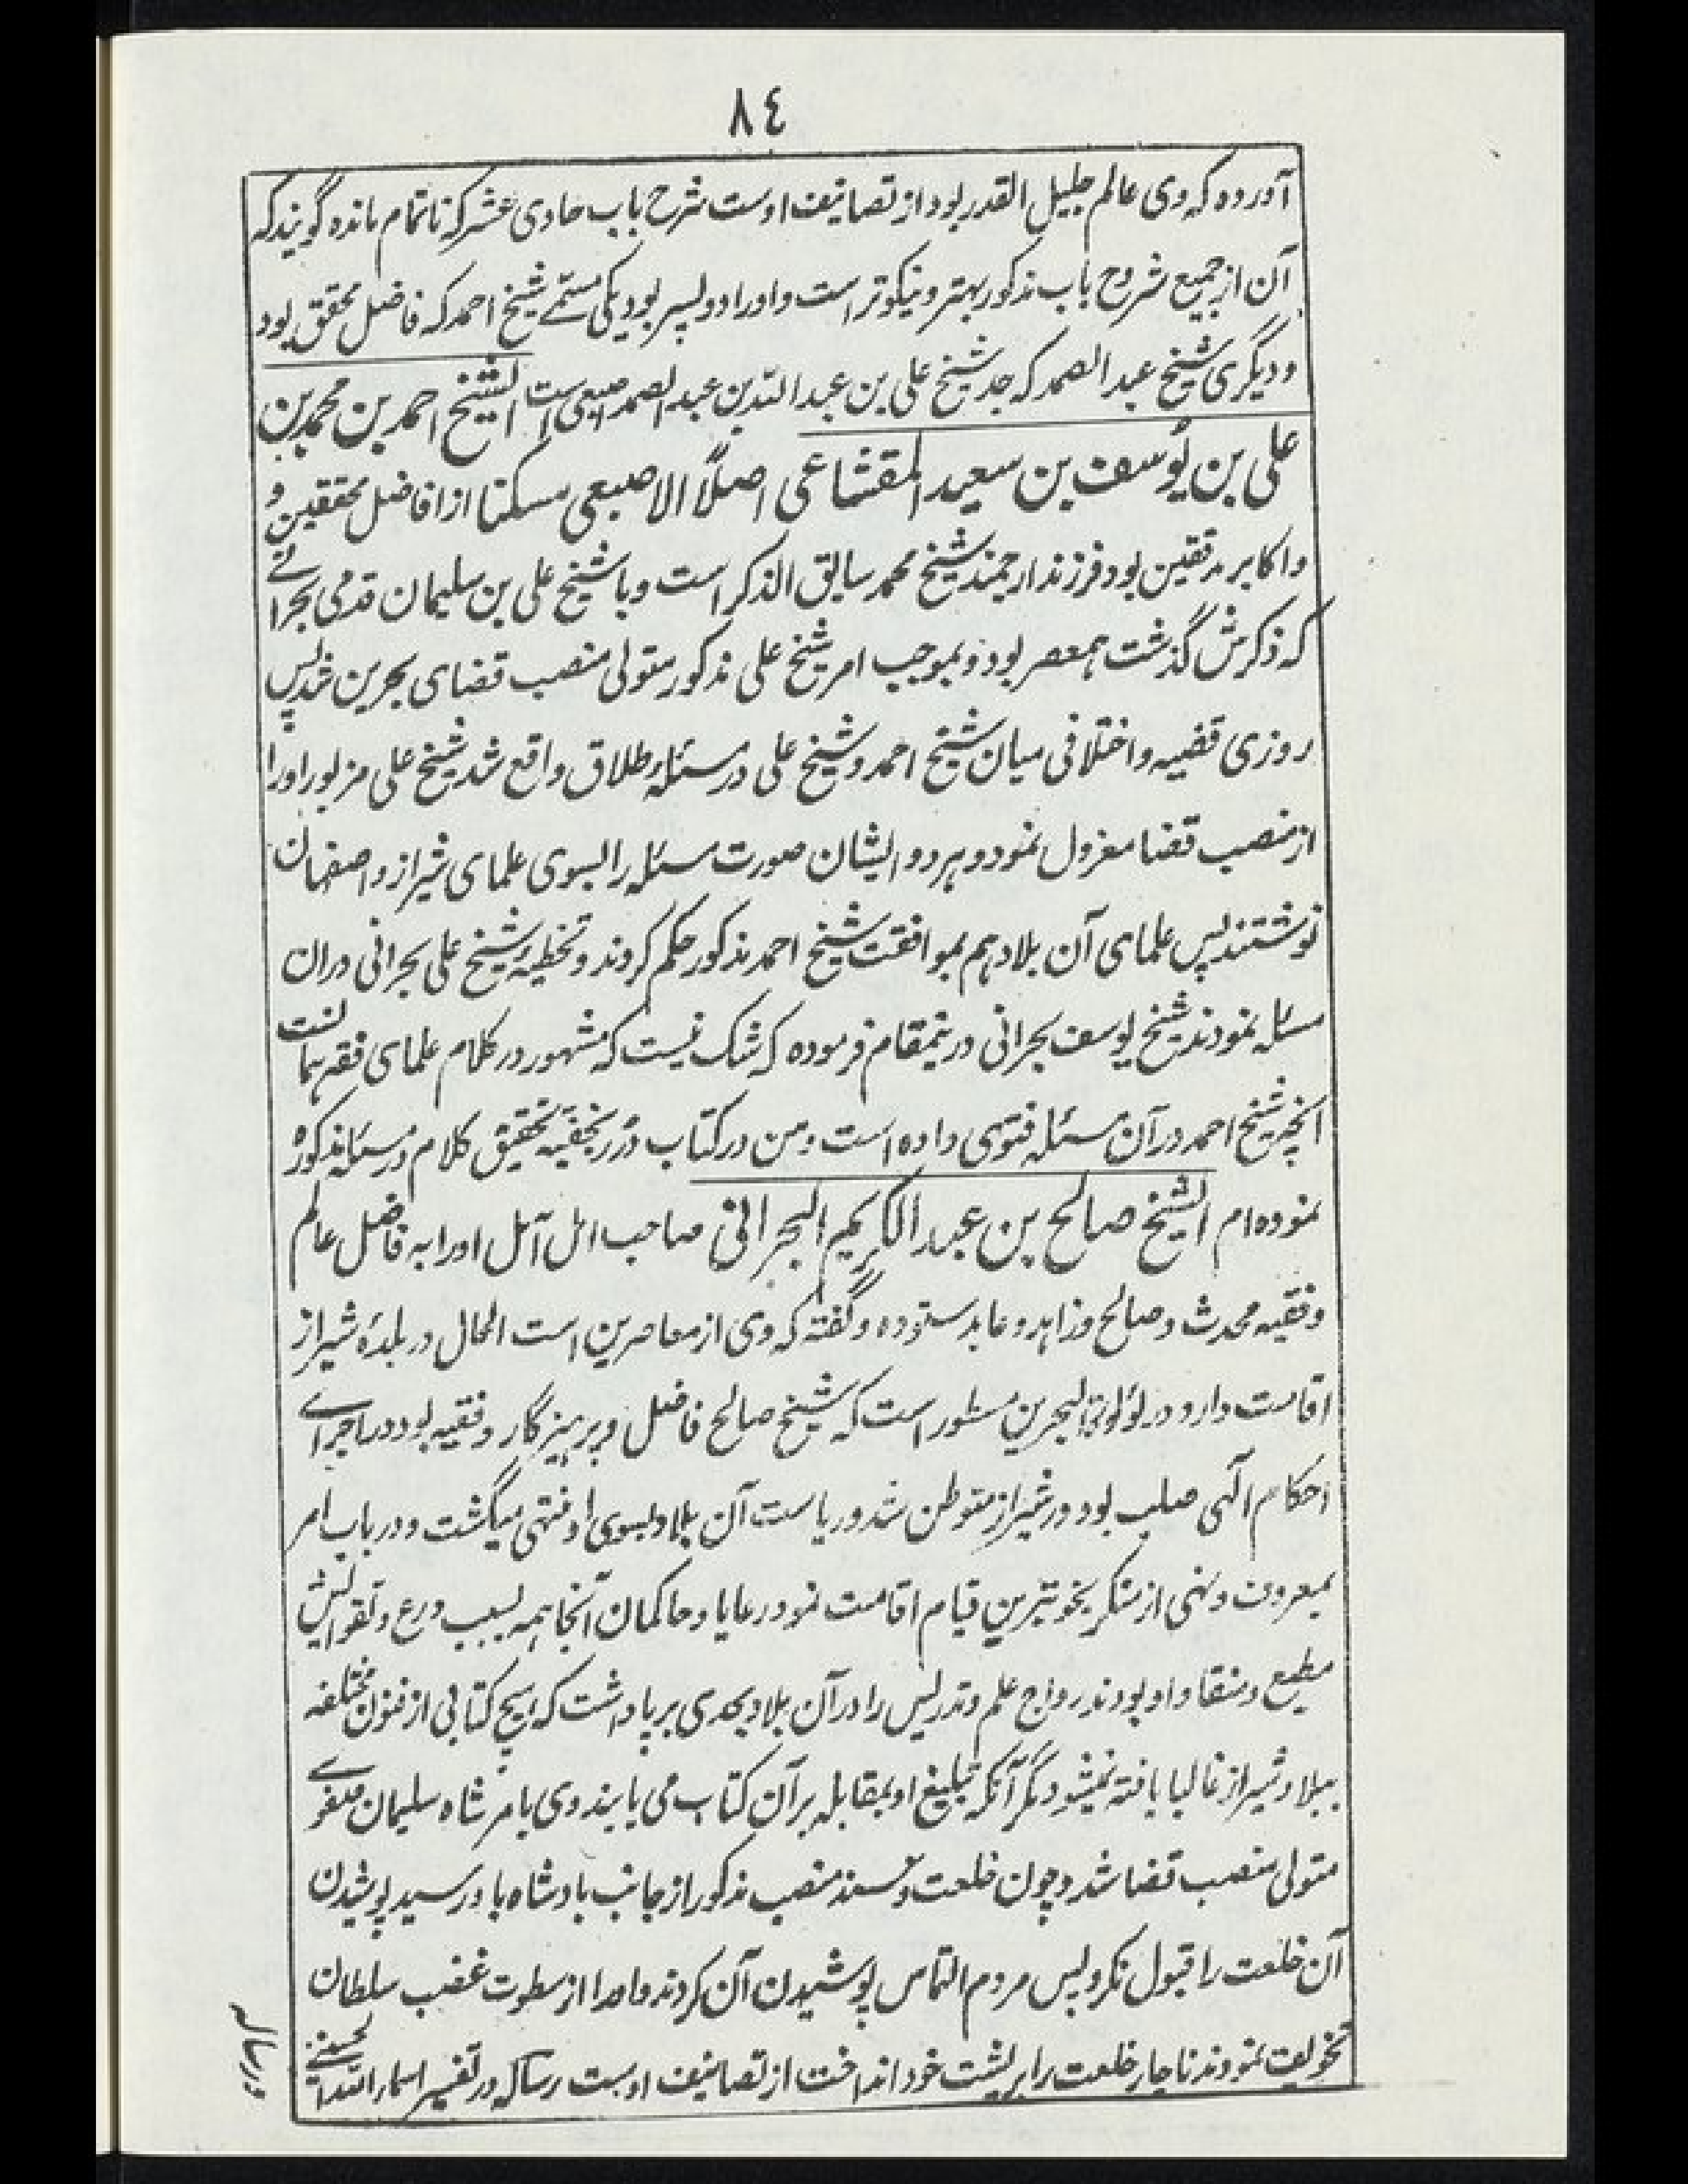 ٨٤
آورده که وی عالم جلیل القدر بود از تصانیف اوست شرح باب حادی عشر که ناتمام مانده گویند که
آن از جمیع شروح باب مذکور بهتر و نیکوتر است و او را دو پسر بود یکی مسمّے شیخ احمد که فاضل محقق بود
و دیگری شیخ عبد الصمد که جد شیخ علی بن عبد اللّه بن عبد الصمد اصبعی است الشیخ احمد بن محمد بن
علی بن یُوسف بن سعید المقشاعی اصلاً الاصبعی مسکنا از افاضل محققین و
و اکابر مدققین بود فرزند ارجمند شیخ محمد سابق الذکر است و با شیخ علی بن سلیمان قدمی بحرانے
که ذکرش گذشت همعصر بود و بموجب امر شیخ علی مذکور متولی منصب قضای بحرین شد پس
روزی قضیه و اختلافی میان شیخ احمد و شیخ علی در مسئلهٔ طلاق واقع شد شیخ علی مزبور او را
از منصب قضا معزول نمود و هر دو ایشان صورت مسئله را بسوی علمای شیراز و اصفهان
نوشتند پس علمای آن بلاد هم بموافقت شیخ احمد مذکور حکم کردند و تخطیهٔ شیخ علی بحرانی دران
مسئله نمودند شیخ یوسف بحرانی درینمقام فرموده که شک نیست که مشهور در کلام علمای فقه همانست
آنچه شیخ احمد در آن مسئله فتوی داده است و من در کتاب دُرر نجفیّه تحقیق کلام در مسئله مذکوره
نموده ام الشیخ صالح بن عبد الکریم البحرانی صاحب امل آمل او را به فاضل عالم
و فقیه محدث و صالح و زاهد و عابد ستوده و گفته که وی از معاصرین است الحال در بلدهٔ شیراز
اقامت دارد و در لؤلؤة البحرین مسطور است که شیخ صالح فاضل و پرهیزگار و فقیه بود در اجراے
احکام الٓهی صلب بود در شیراز متوطن شد و ریاست آن بلاد بسوی او منتهی میگشت و در باب امر
بمعروف و نهی از منکر بخوبترین قیام اقامت نمود رعایا و حاکمان آنجا همه بسبب ورع و تقوایش
مطیع و منقاد او بودند رواج علم و تدریس را در آن بلاد بحدی برپا داشت که هیچ کتابی از فنون مختلفه
ببلاد شیراز غالبا یافته نمیشود مگر آنکه تبلیغ او بمقابله بر آن کتاب می یابند و وی بامر شاه سلیمان صفوے
متولی منصب قضا شد و چون خلعت و سند منصب مذکور از جانب بادشاه باو رسید پوشیدن
آن خلعت را قبول نکرد پس مردم التماس پوشیدن آن کردند و او را از سطوت غضب سلطان
تخویف نمودند ناچار خلعت را بر پشت خود انداخت از تصانیف اوست رساله در تفسیر اسماء اللّه الحسنےٰ
و رساله